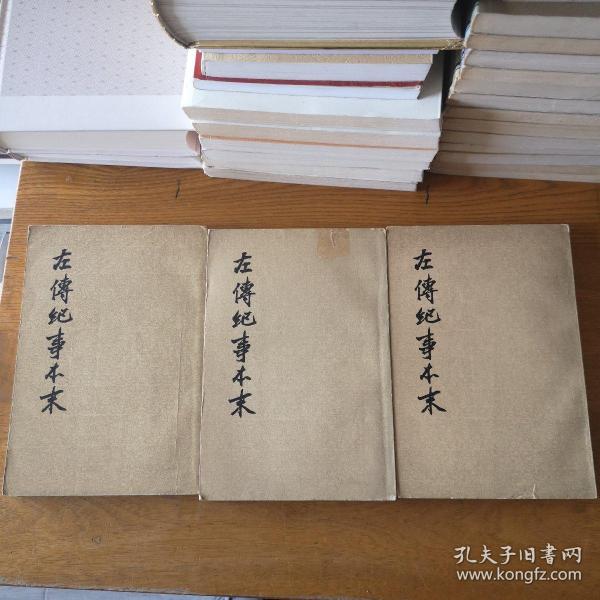 左傳紀事本末
左傳紀事本末
左傳紀事本末
孔夫子旧書网
www.kongfz.com